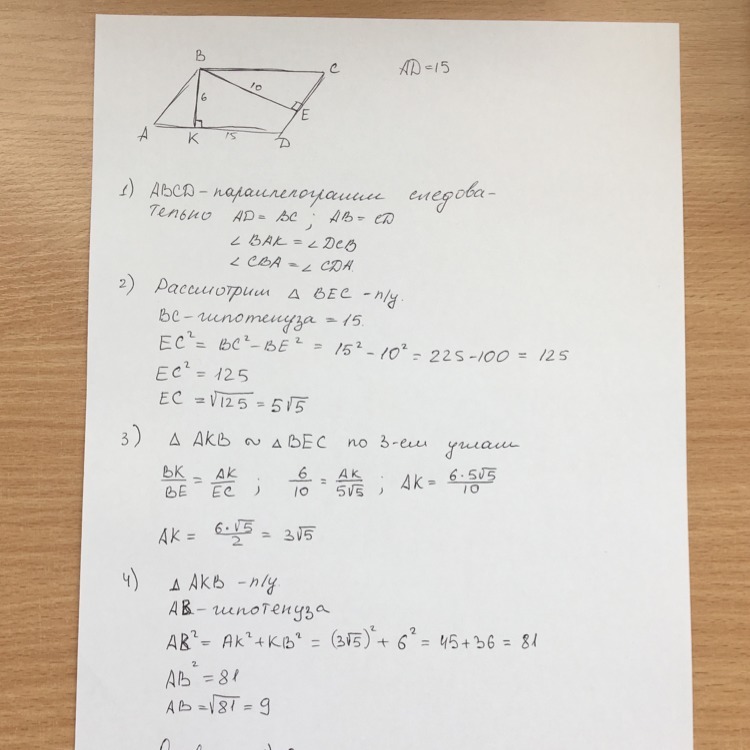 B
C
AD=15
10
6
E
A
K
15
D
1) ABCD - параллелограмм следова-
тельно AD = BC ; AB = CD
∠ BAK = ∠ DCB
∠ CBA = ∠ CDA.
2) Рассмотрим △ BEC - п/у.
BC - гипотенуза = 15.
EC² = BC² - BE² = 15² - 10² = 225 - 100 = 125
EC² = 125
EC = √125 = 5√5
3) △ AKB ∾ △ BEC по 3-ем углам
BK/BE = AK/EC ; 6/10 = AK/5√5 ; AK = 6·5√5/10
AK = 6·√5/2 = 3√5
4) △ AKB - п/у.
AB - гипотенуза
AB² = AK² + KB² = (3√5)² + 6² = 45 + 36 = 81
AB² = 81
AB = √81 = 9